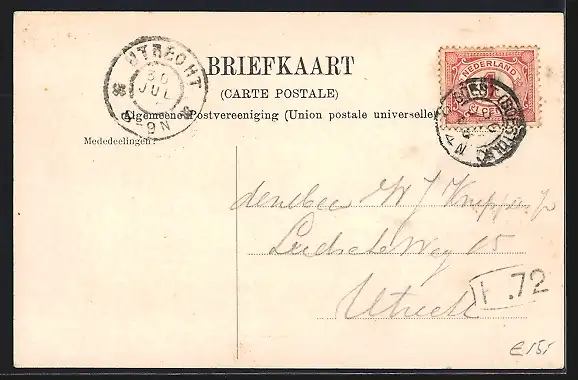 UTRECHT
30
JUL
8-9N
BRIEFKAART
(CARTE POSTALE)
Algemeene Postvereeniging (Union postale universelle)
NEDERLAND
1
Mededeelingen:
W J
Leidsche Weg 15
Utrecht
.72